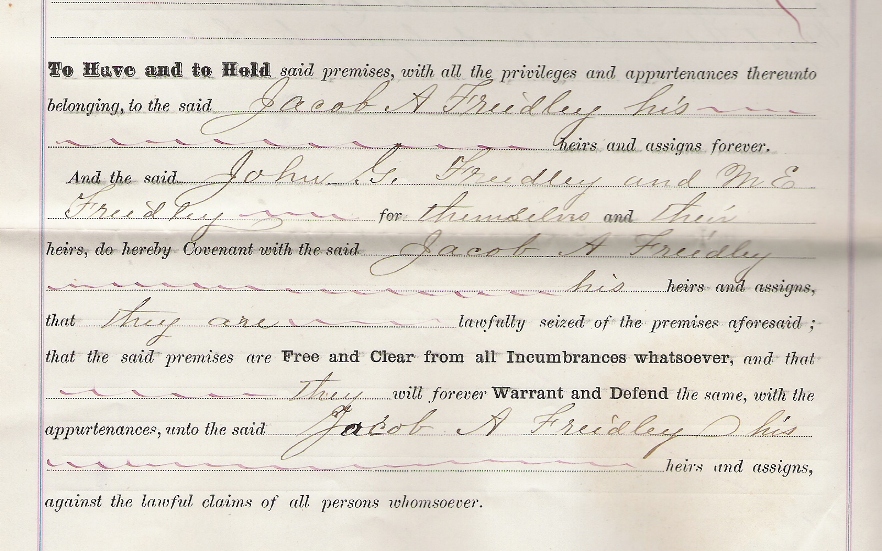 To Have and to Hold said premises, with all the privileges and appurtenances thereunto
belonging, to the said Jacob A Freidley his
heirs and assigns forever.
And the said John G. Freidley and M E
Freidley for themselvs and their
heirs, do hereby Covenant with the said Jacob A Freidley
his heirs and assigns,
that they are lawfully seized of the premises aforesaid ;
that the said premises are Free and Clear from all Incumbrances whatsoever, and that
they will forever Warrant and Defend the same, with the
appurtenances, unto the said Jacob A Freidley his
heirs and assigns,
against the lawful claims of all persons whomsoever.